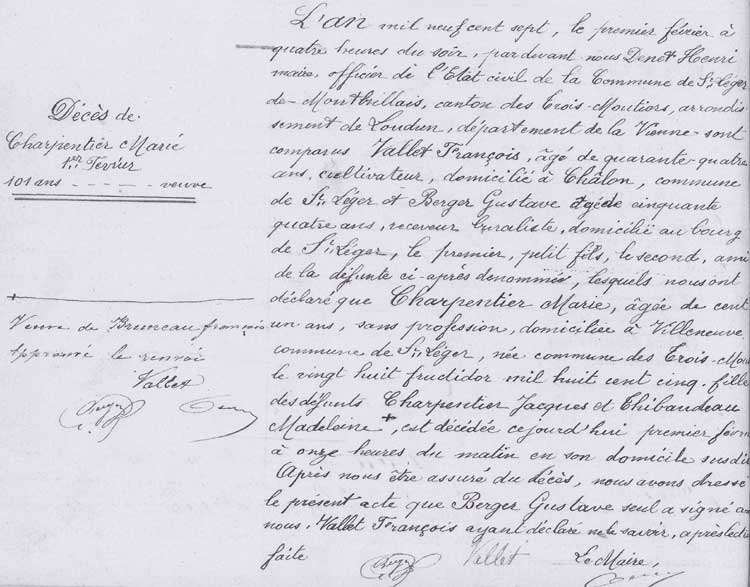 Décès de
Charpentier Marie
1er Février
101 ans - - - - - veuve
Veuve de Bruneau françois
Approuvé le renvoi
Vallet
L'an mil neuf cent sept, le premier février à
quatre heures du soir, pardevant nous Denet Henri
maire, officier de l'Etat civil de la Commune de St Léger
de-Montbrillais, canton des Trois-Moutiers, arrondis
sement de Loudun, département de la Vienne sont
comparus Vallet François, âgé de quarante-quatre
ans, cultivateur, domicilié à Châlon, commune
de St Léger et Berger Gustave âgé de cinquante
quatre ans, receveur buraliste, domicilié au bourg
de St Léger, le premier, petit fils, le second, ami
de la défunte ci-après dénommée, lesquels nous ont
déclaré que Charpentier Marie, âgée de cent
un ans, sans profession, domiciliée à Villeneuve
commune de St Léger, née commune des Trois-Mou
le vingt huit fructidor mil huit cent cinq, fille
des défunts Charpentier Jacques et Thibaudeau
Madeleine +, est décédée cejourd'hui premier févri
à onze heures du matin en son domicile susdit
Après nous être assuré du décès, nous avons dressé
le présent acte que Berger Gustave seul a signé av
nous, Vallet François ayant déclaré ne le savoir, après lectu
faite Vallet Le Maire,